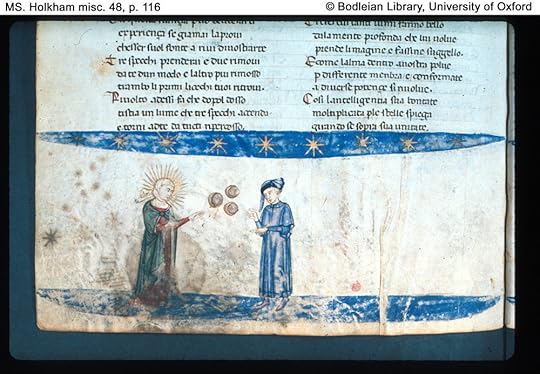 MS. Holkham misc. 48, p. 116
© Bodleian Library, University of Oxford
experiença se giamai la proui
chesser suol fonte a riui diuostrarte
Tre specchi prenderai e due rimoui
da te dun modo e laltro piu rimosso
tramboli primi li occhi tuoi ritroui
Riuolto adessi fa che dopol dosso
ti stia un lume che tre specchi accenda
e torni adte da tucti ripercosso
tanti lumi fanno bello
mente profonda che lui uolue
prende limagine e fassine suggello
E come lalma dentro auostra polue
p differente menbra e conformate
a diuerse potençe si risolue
Cosi lantelligentia sua bontate
moltiplicata ple stelle spiega
girando se sopra sua unitate.